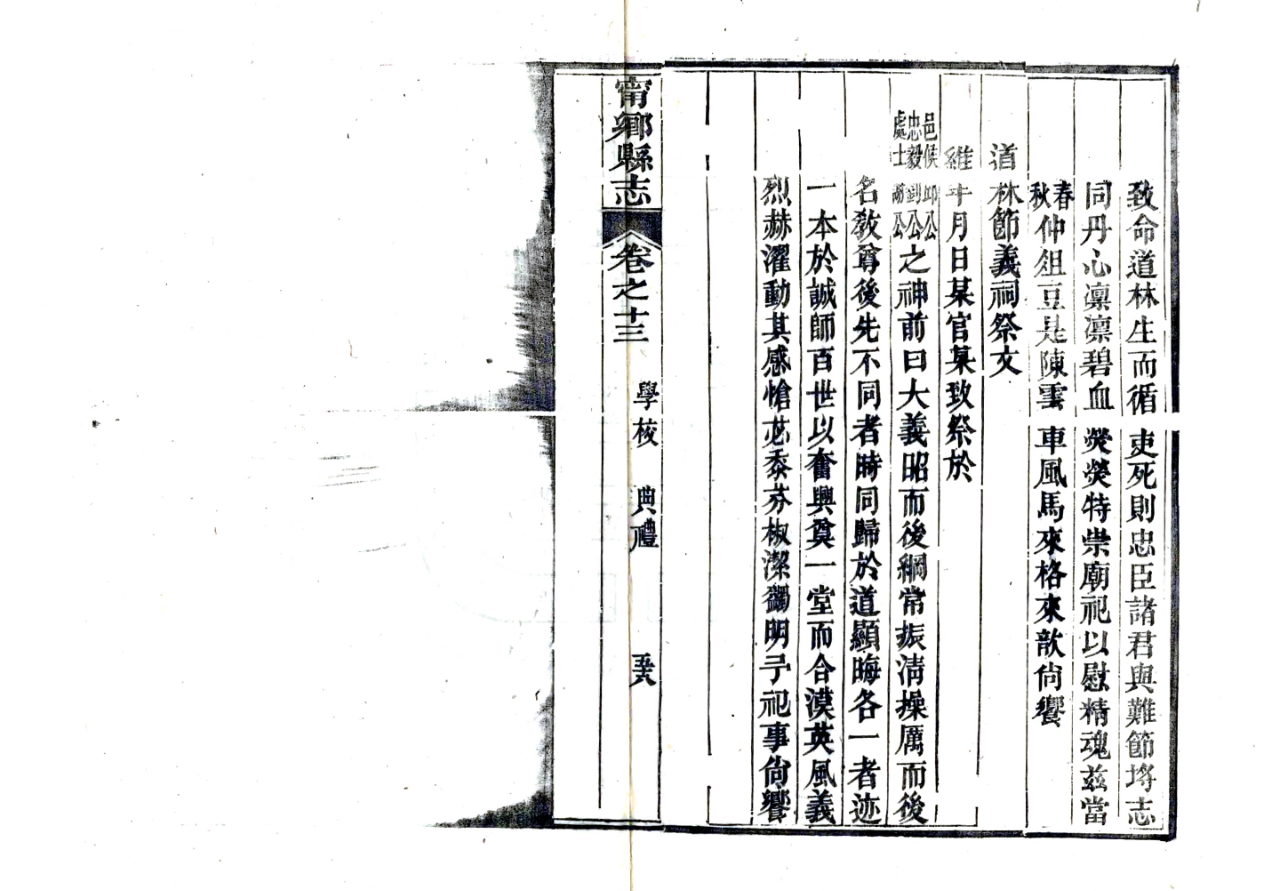 致命道林生而循吏死則忠臣諸君與難節埓志
同丹心凛凛碧血熒熒特崇廟祀以慰精魂兹當
春秋仲俎豆是陳雲車風馬來格來歆尙饗
道林節義祠祭文
維年月日某官某致祭於
邑侯邱公忠毅劉公處士公之神前曰大義昭而後綱常振淸操厲而後
名敎尊後先不同者時同歸於道顯晦各一者迹
一本於誠師百世以奮興奠一堂而合漠英風義
烈赫濯動其感愴苾黍芬椒潔蠲明予祀事尙饗
甯鄕縣志 卷之十三 學校 典禮